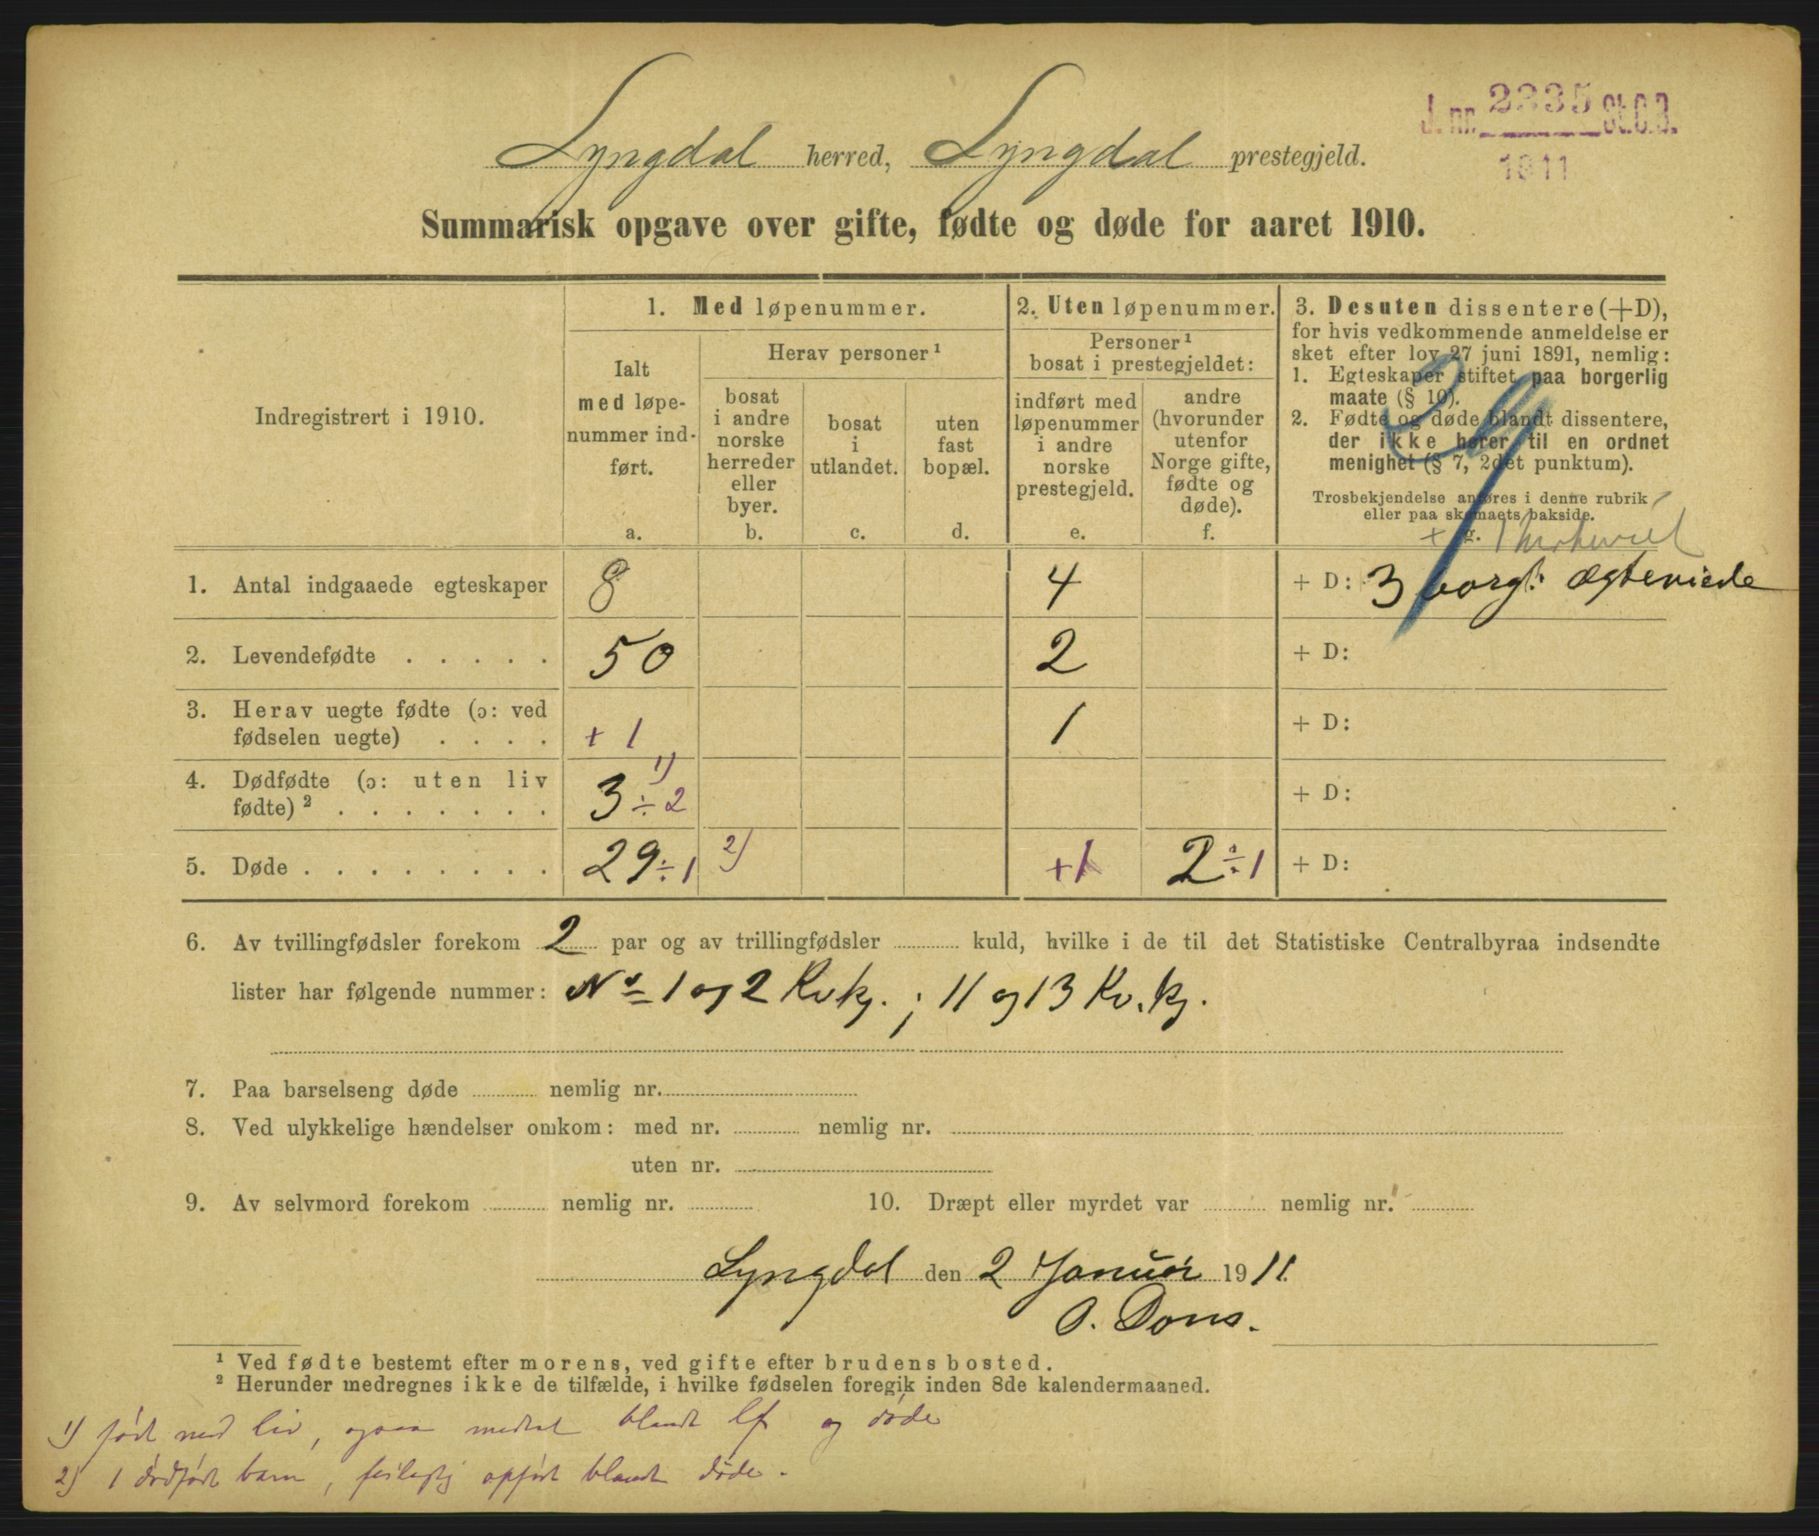 J. nr. 2335 St.C.B.
1911
Lyngdal herred, Lyngdal prestegjeld.
Summarisk opgave over gifte, fødte og døde for aaret 1910.
Indregistrert i 1910.
1. Med løpenummer.
Ialt
med løpe-
nummer ind-
ført.
a.
Herav personer ¹
bosat
i andre
norske
herreder
eller
byer.
b.
bosat
i
utlandet.
c.
uten
fast
bopæl.
d.
2. Uten løpenummer.
Personer ¹
bosat i prestegjeldet:
indført med
løpenummer
i andre
norske
prestegjeld.
e.
andre
(hvorunder
utenfor
Norge gifte,
fødte og
døde).
f.
3. Desuten dissentere (+D),
for hvis vedkommende anmeldelse er
sket efter lov 27 juni 1891, nemlig:
1. Egteskaper stiftet paa borgerlig
maate (§ 10).
2. Fødte og døde blandt dissentere,
der ikke hører til en ordnet
menighet (§ 7, 2det punktum).
Trosbekjendelse anføres i denne rubrik
eller paa skemaets bakside.
+ g.
1. Antal indgaaede egteskaper 8 4 + D: 3 borgl. ægteviede
2. Levendefødte . . . . . 50 2 + D:
3. Herav uegte fødte (ɔ: ved
fødselen uegte) . . . . + 1 1 + D:
4. Dødfødte (ɔ: uten liv
fødte) ² . . . . . . . 3 ÷ 2 1) + D:
5. Døde . . . . . . . . 29 ÷ 1 2) +1 2 ÷ 1 + D:
6. Av tvillingfødsler forekom 2 par og av trillingfødsler kuld, hvilke i de til det Statistiske Centralbyraa indsendte
lister har følgende nummer: No 1 og 2 Kvkj. ; 11 og 13 Kv.kj.
7. Paa barselseng døde nemlig nr.
8. Ved ulykkelige hændelser omkom: med nr. nemlig nr.
uten nr.
9. Av selvmord forekom nemlig nr. 10. Dræpt eller myrdet var nemlig nr.
Lyngdal den 2 Januar 1911.
O. Dons.
¹ Ved fødte bestemt efter morens, ved gifte efter brudens bosted.
² Herunder medregnes ikke de tilfælde, i hvilke fødselen foregik inden 8de kalendermaaned.
1) født med liv, ogsaa medtat blandt lf og døde
2) 1 dødfødt barn, feilagtig opført blandt døde.